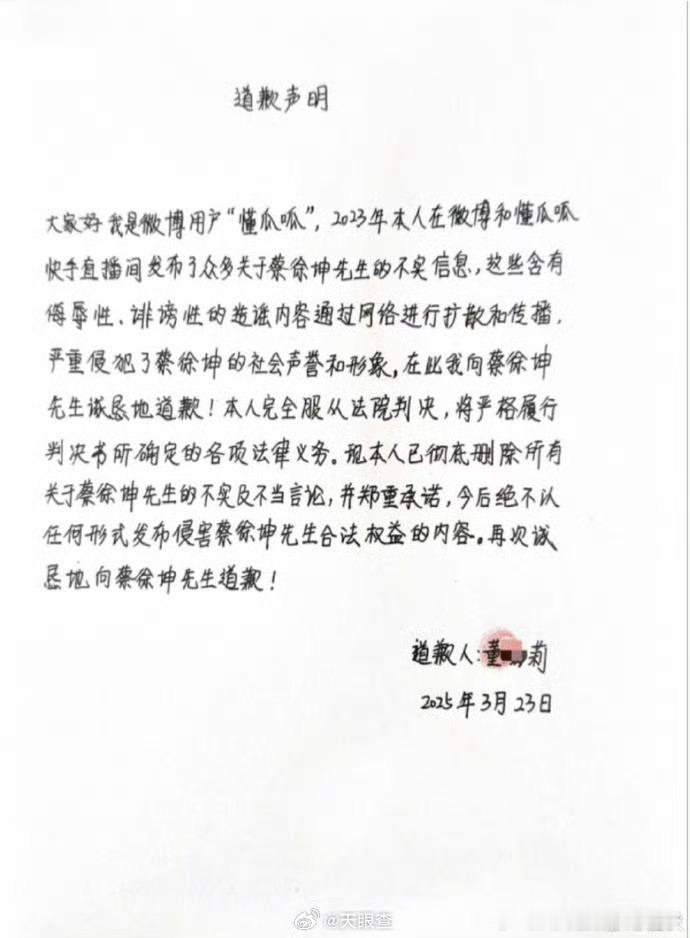 道歉声明
大家好我是微博用户“懂瓜呱”，2023年本人在微博和懂瓜呱
快手直播间发布了众多关于蔡徐坤先生的不实信息，这些含有
侮辱性、诽谤性的造谣内容通过网络进行扩散和传播，
严重侵犯了蔡徐坤的社会声誉和形象，在此我向蔡徐坤
先生诚恳地道歉！本人完全服从法院判决，将严格履行
判决书所确定的各项法律义务。现本人已彻底删除所有
关于蔡徐坤先生的不实及不当言论，并郑重承诺，今后绝不以
任何形式发布侵害蔡徐坤先生合法权益的内容。再次诚
恳地向蔡徐坤先生道歉！
道歉人：董莉
2025年3月23日
@天眼查